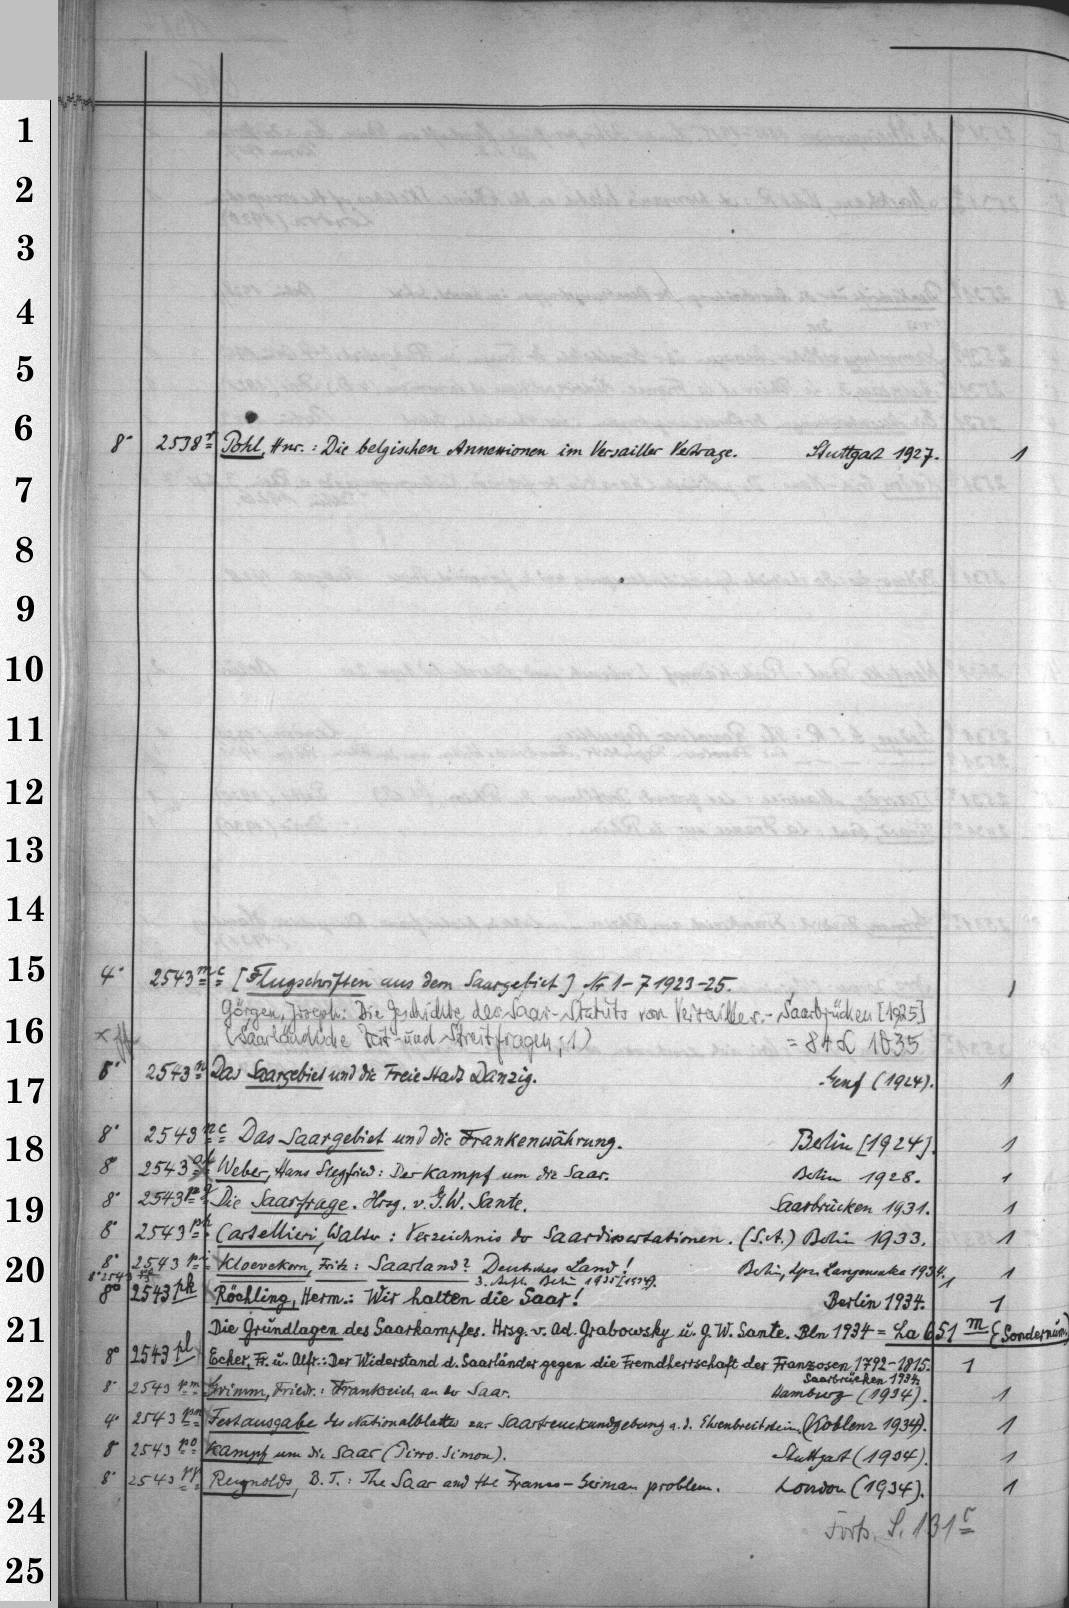 1
2
3
4
5
6
8° 2538 r Pohl, Hnr.: Die belgischen Annexionen im Versailler Vertrage. Stuttgart 1927. 1
7
8
9
10
11
12
13
14
15
4° 2543 mc [Flugschriften aus dem Saargebiet] Nr 1-7 1923-25. 1
Görgen, Joseph: Die Geschichte des Saar-Statuts von Versailles.- Saarbrücken [1925]
16
(Saarländische Zeit- und Streitfragen; 1) = 84 1835
8° 2543 n Das Saargebiet und die Freie Stadt Danzig. Genf (1924). 1
17
8° 2543 nc Das Saargebiet und die Frankenwährung. Berlin [1924]. 1
18
8° 2543 Weber, Hans Siegfried: Der Kampf um die Saar. Berlin 1928. 1
8° 2543 Die Saarfrage. Hrsg. v. G.W. Sante. Saarbrücken 1931. 1
19
8° 2543 ph Cartellieri, Walter: Verzeichnis der Saardissertationen. (S.A.) Berlin 1933. 1
8° 2543 pi Kloevekorn, Fritz: Saarland? Deutsches Land! Berlin, Lpz. Langensalza 1934. 1
20
8° 2543 3. Aufl. Berlin 1935 [1934]. 1
8° 2543 pk Röchling, Herm.: Wir halten die Saar! Berlin 1934. 1
21
Die Grundlagen des Saarkampfes. Hrsg. v. Ad. Grabowsky u. G.W. Sante. Bln 1934 = La 651 m (Sondernum.)
8° 2543 pl Ecker, Fr. u. Alfr.: Der Widerstand d. Saarländer gegen die Fremdherrschaft der Franzosen 1792-1815. 1
Saarbrücken 1934.
22
8° 2543 pm Grimm, Friedr.: Frankreich an der Saar. Hamburg (1934). 1
4° 2543 pn Festausgabe des Nationalblattes zur Saartreuekundgebung a. d. Ehrenbreitstein. (Koblenz 1934). 1
23
8° 2543 po Kampf um die Saar (Pirro. Simon). Stuttgart (1934). 1
8° 2543 pp Reynolds, B.T.: The Saar and the Franco-German problem. London (1934). 1
24
Forts. S. 131 r
25